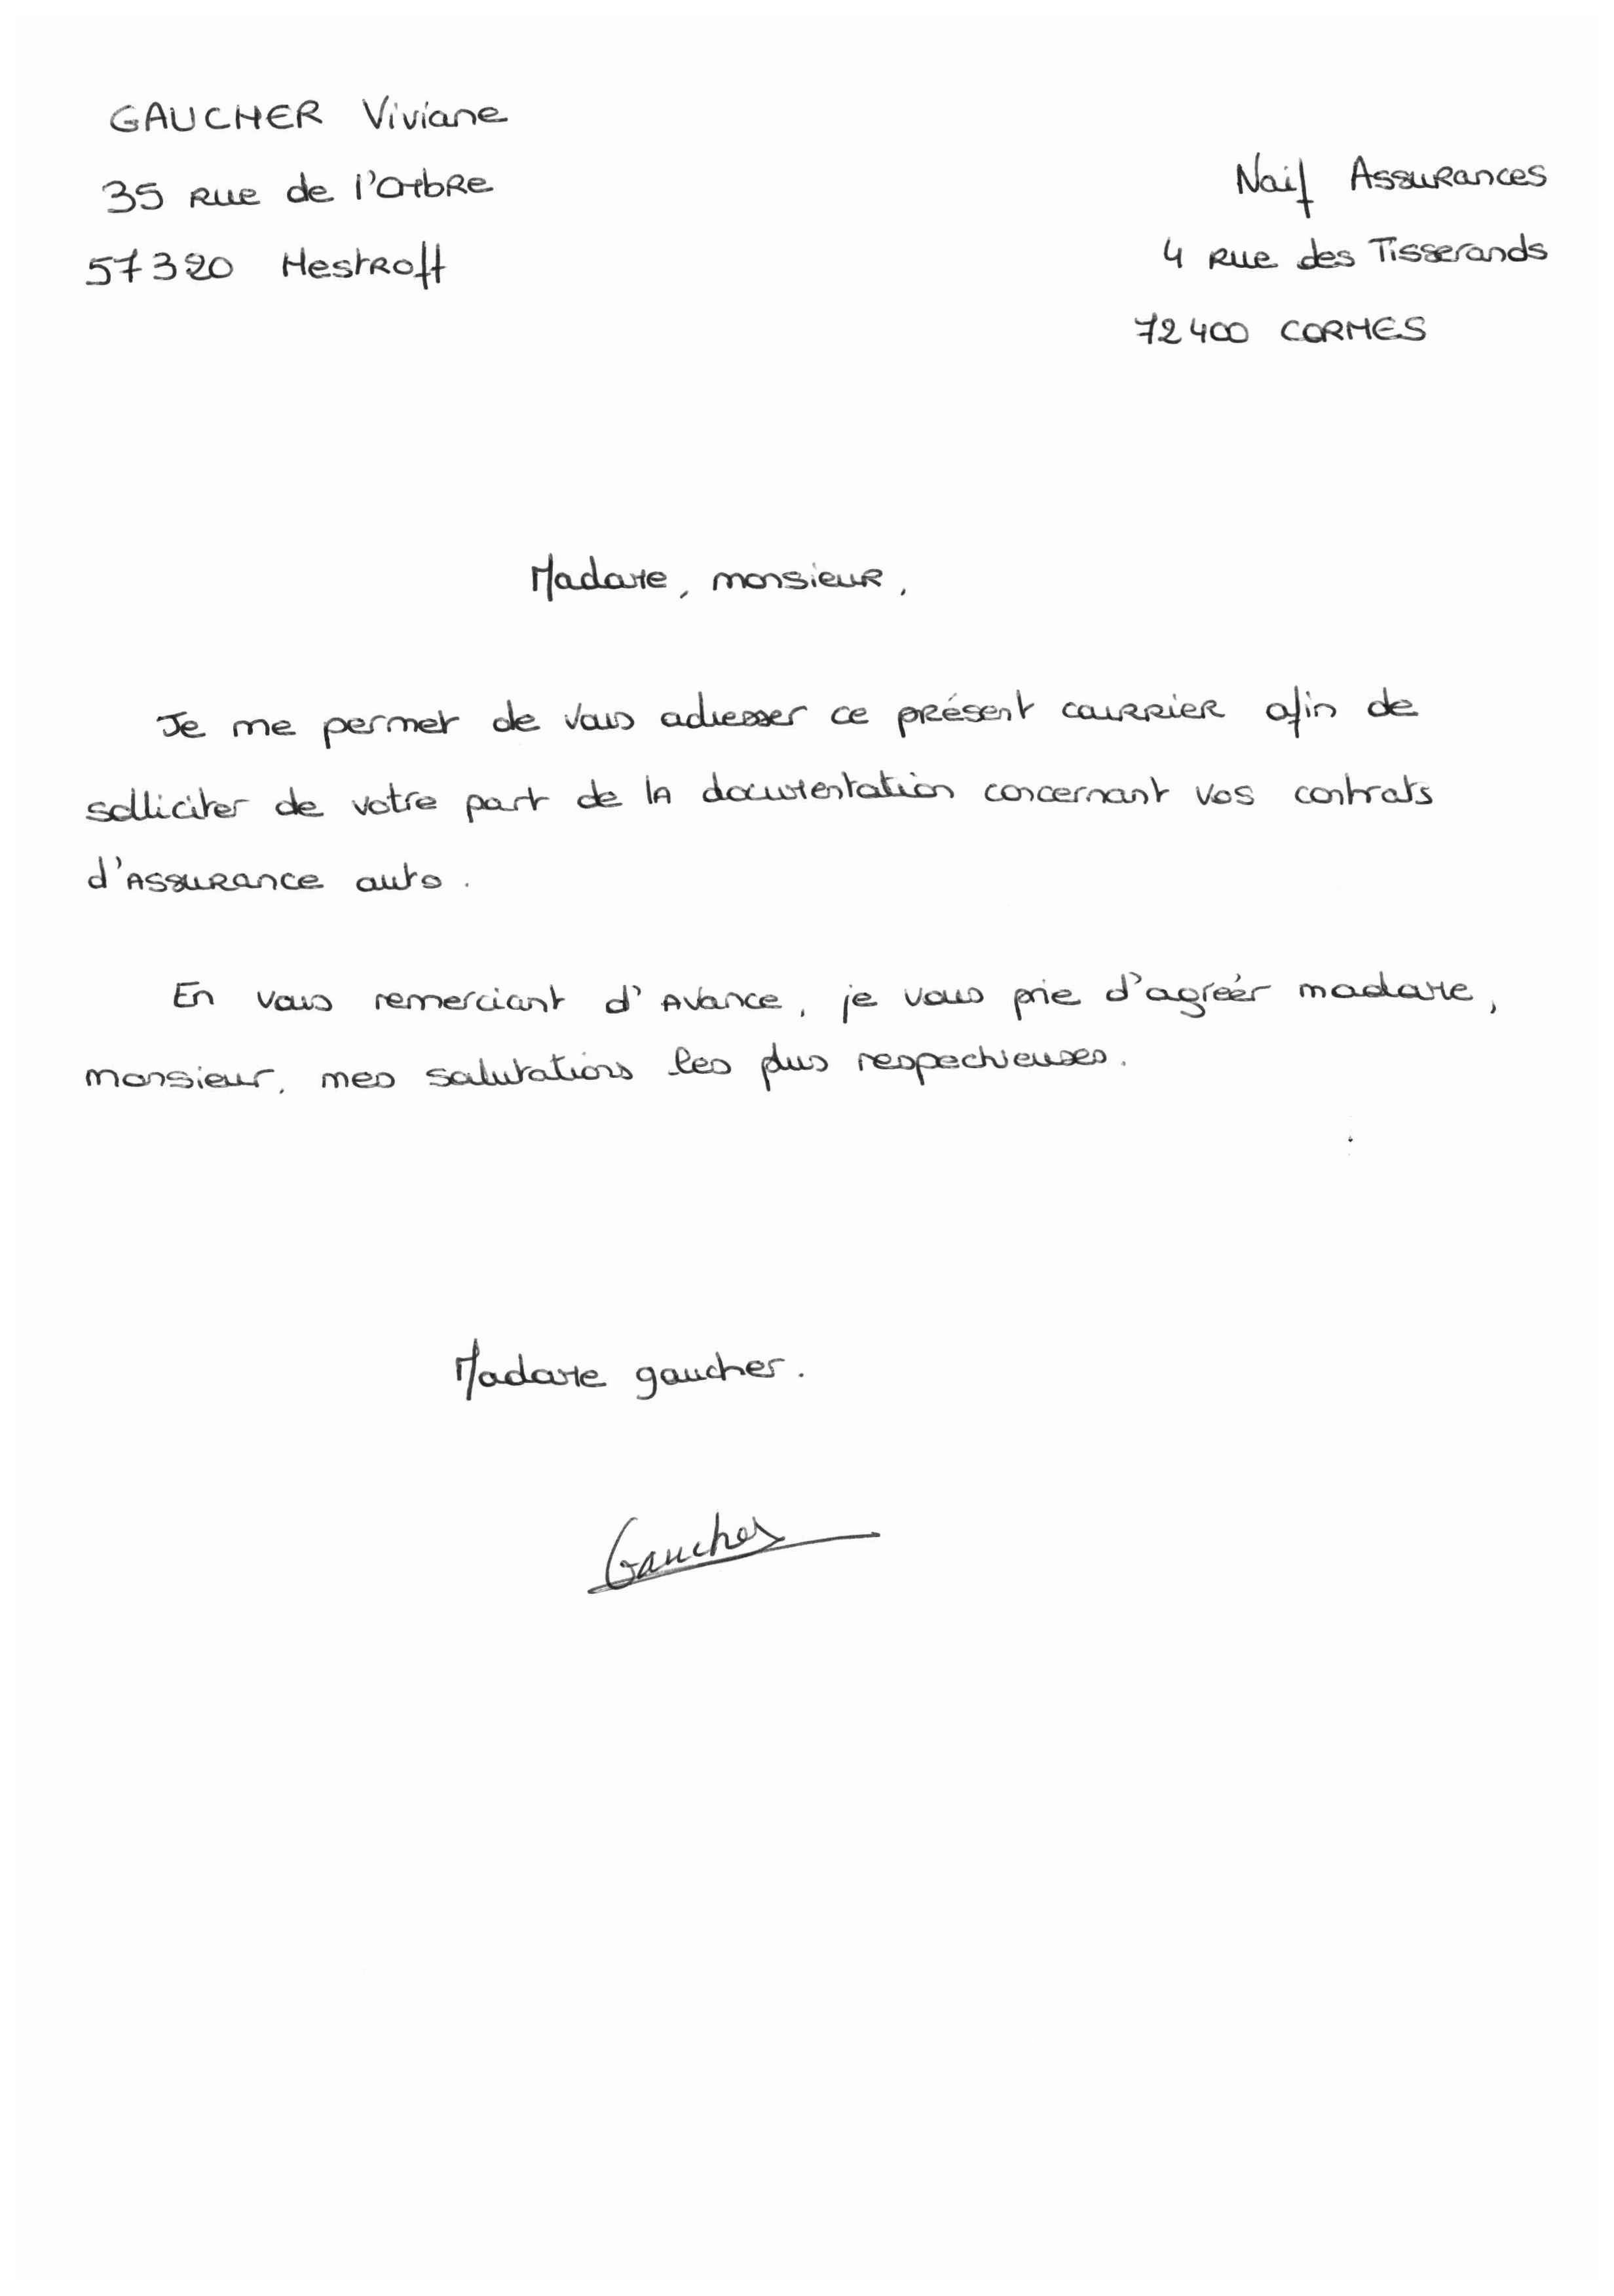 GAUCHER Viviane
35 rue de l'Orbre
57320 Hestroff
Naif Assurances
4 rue des Tisserands
72400 CORMES
Madame, monsieur,
Je me permet de vous adresser ce présent courrier afin de
solliciter de votre part de la documentation concernant vos contrats
d'assurance auto.
En vous remerciant d'avance, je vous prie d'agréér madame,
monsieur, mes salutations les plus respectieuses.
Madame gaucher.
Gaucher